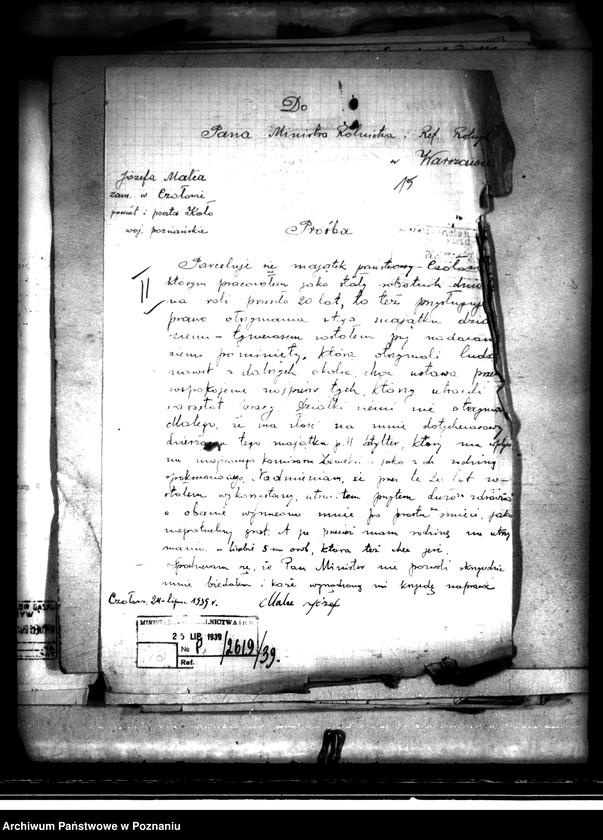 Do
Pana Ministra Rolnictwa i Ref. Rolnych
w Warszawie
15
Józefa Malca
zam. w Czołowie
powiat i poczta Koło
woj. poznańskie
Prośba
Parceluje się majątek państwowy Czołowo
którym pracowałem jako stały robotnik
na roli przeszło 20 lat, to też przysługuje
prawo otrzymania z tego majątku
ziemi – tymczasem zostałem przy
ziemi pominięty, którą otrzymali ludzie
nawet z dalszych okolic, choć ustawa
najpierw tych, którzy utracili
warsztat pracy. Działki ziemi nie
dlatego, że ma złość na mnie dotychczasowy
dzierżawca tego majątku p. H. który ma wpływ
na komisarza i jako z nim rodziną
spokrewnionego. Nadmieniam, że przez te 20 lat zo-
stałem wykorzystany, utraciłem przytem dużo zdrowia
a obecnie wyrzucono mnie po prostu na śmieci, jako
niepotrzebny grat. A ja przecież mam rodzinę na utrzy
maniu, w liczbie 5-u osób, która też chce jeść.
Spodziewam się, że Pan Minister nie pozwoli skrzywdzić
mnie biedaka i każe wyrządzoną mi krzywdę naprawić
Czołowo, 24-lipca 1939 r. Malec Józef
MINISTERSTWO ROLNICTWA I R.R.
25 LIP 1939
№ P. /2619/39.
Ref.
Archiwum Państwowe w Poznaniu